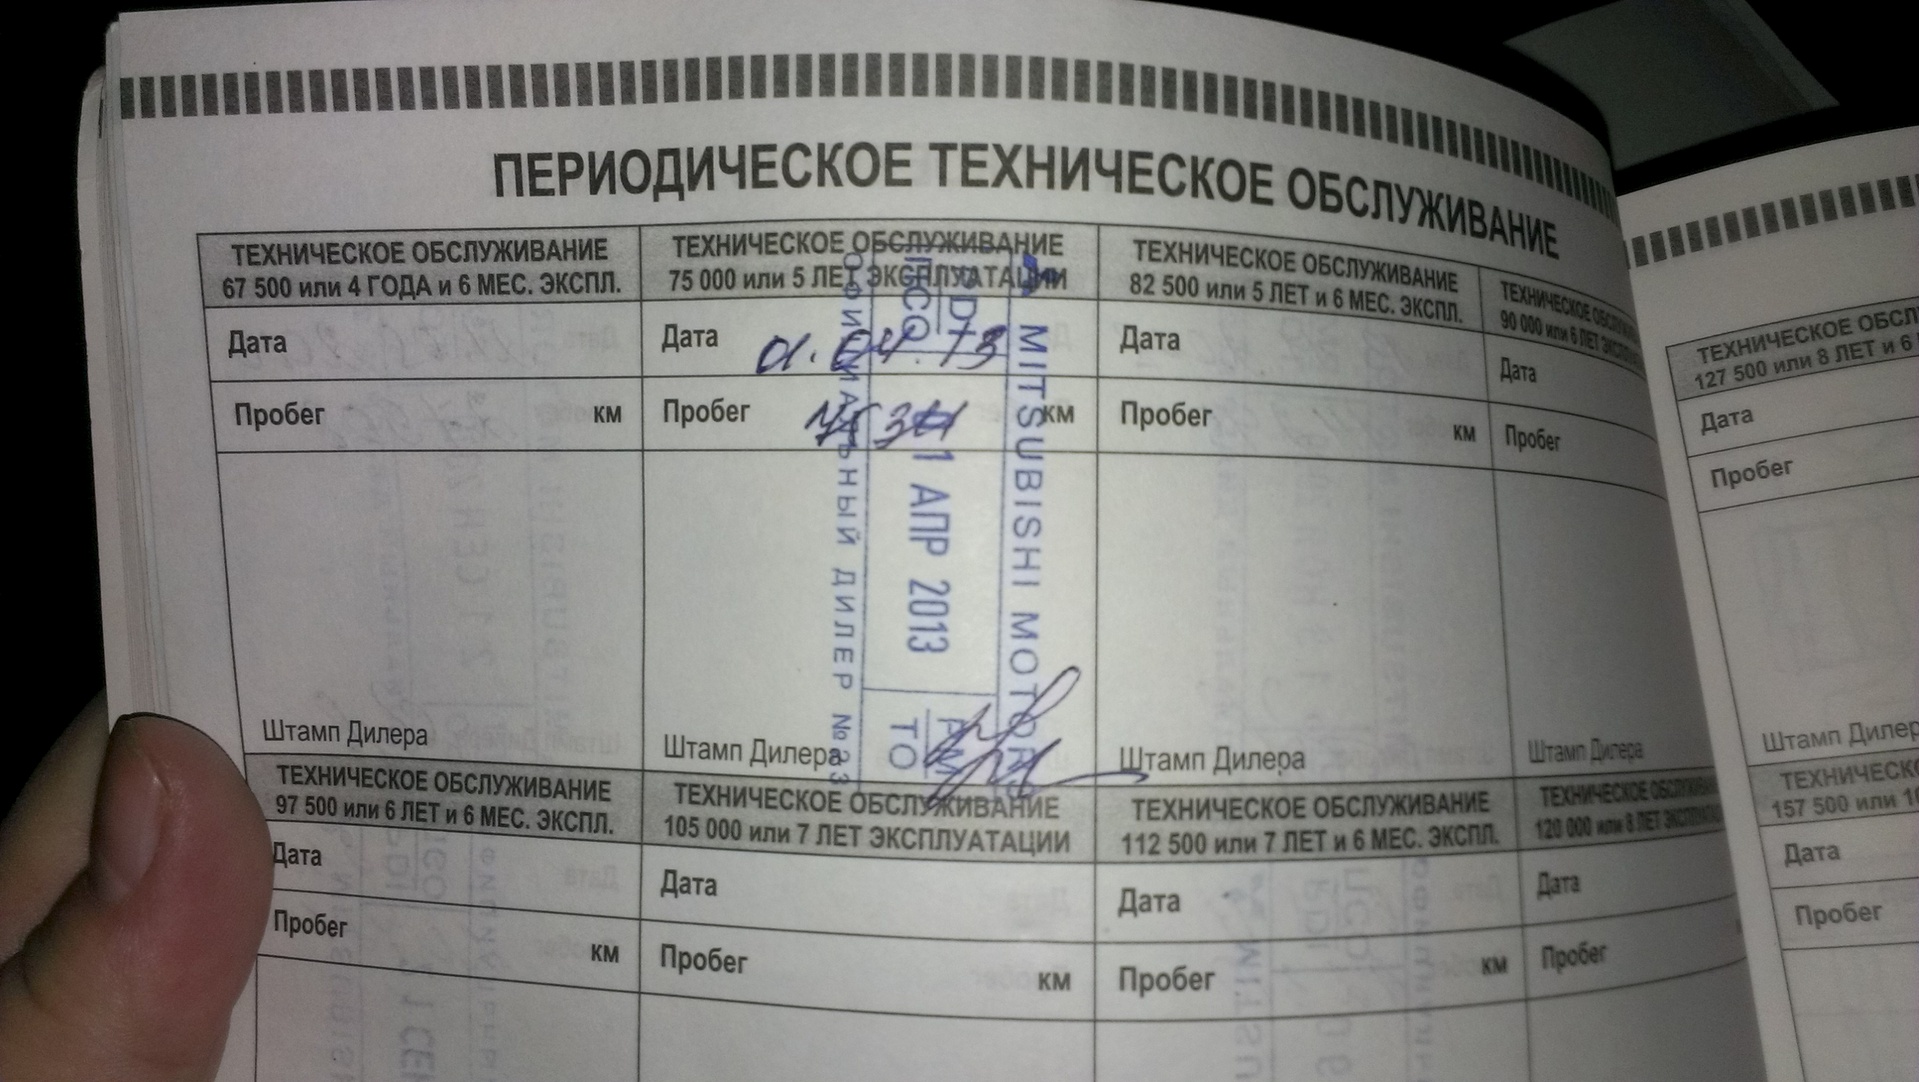 ПЕРИОДИЧЕСКОЕ ТЕХНИЧЕСКОЕ ОБСЛУЖИВАНИЕ
ТЕХНИЧЕСКОЕ ОБСЛУЖИВАНИЕ
67 500 или 4 ГОДА и 6 МЕС. ЭКСПЛ.
Дата
Пробег км
Штамп Дилера
ТЕХНИЧЕСКОЕ ОБСЛУЖИВАНИЕ
75 000 или 5 ЛЕТ ЭКСПЛУАТАЦИИ
Дата 01.04.13
Пробег км
MITSUBISHI MOTORS
01 АПР 2013
ОФИЦИАЛЬНЫЙ ДИЛЕР №
ТО
Штамп Дилера
ТЕХНИЧЕСКОЕ ОБСЛУЖИВАНИЕ
82 500 или 5 ЛЕТ и 6 МЕС. ЭКСПЛ.
Дата
Пробег км
Штамп Дилера
ТЕХНИЧЕСКОЕ
90 000 или 6 ЛЕТ
Дата
Пробег
Штамп Дилера
ТЕХНИЧЕСКОЕ ОБСЛУЖИВАНИЕ
97 500 или 6 ЛЕТ и 6 МЕС. ЭКСПЛ.
Дата
Пробег км
ТЕХНИЧЕСКОЕ ОБСЛУЖИВАНИЕ
105 000 или 7 ЛЕТ ЭКСПЛУАТАЦИИ
Дата
Пробег км
ТЕХНИЧЕСКОЕ ОБСЛУЖИВАНИЕ
112 500 или 7 ЛЕТ и 6 МЕС. ЭКСПЛ.
Дата
Пробег км
ТЕХНИЧЕСКОЕ
120 000 или 8 ЛЕТ
Дата
Пробег
ТЕХНИЧЕСКОЕ
127 500 или 8 ЛЕТ и 6
Дата
Пробег
Штамп
157 500 или
Дата
Пробег